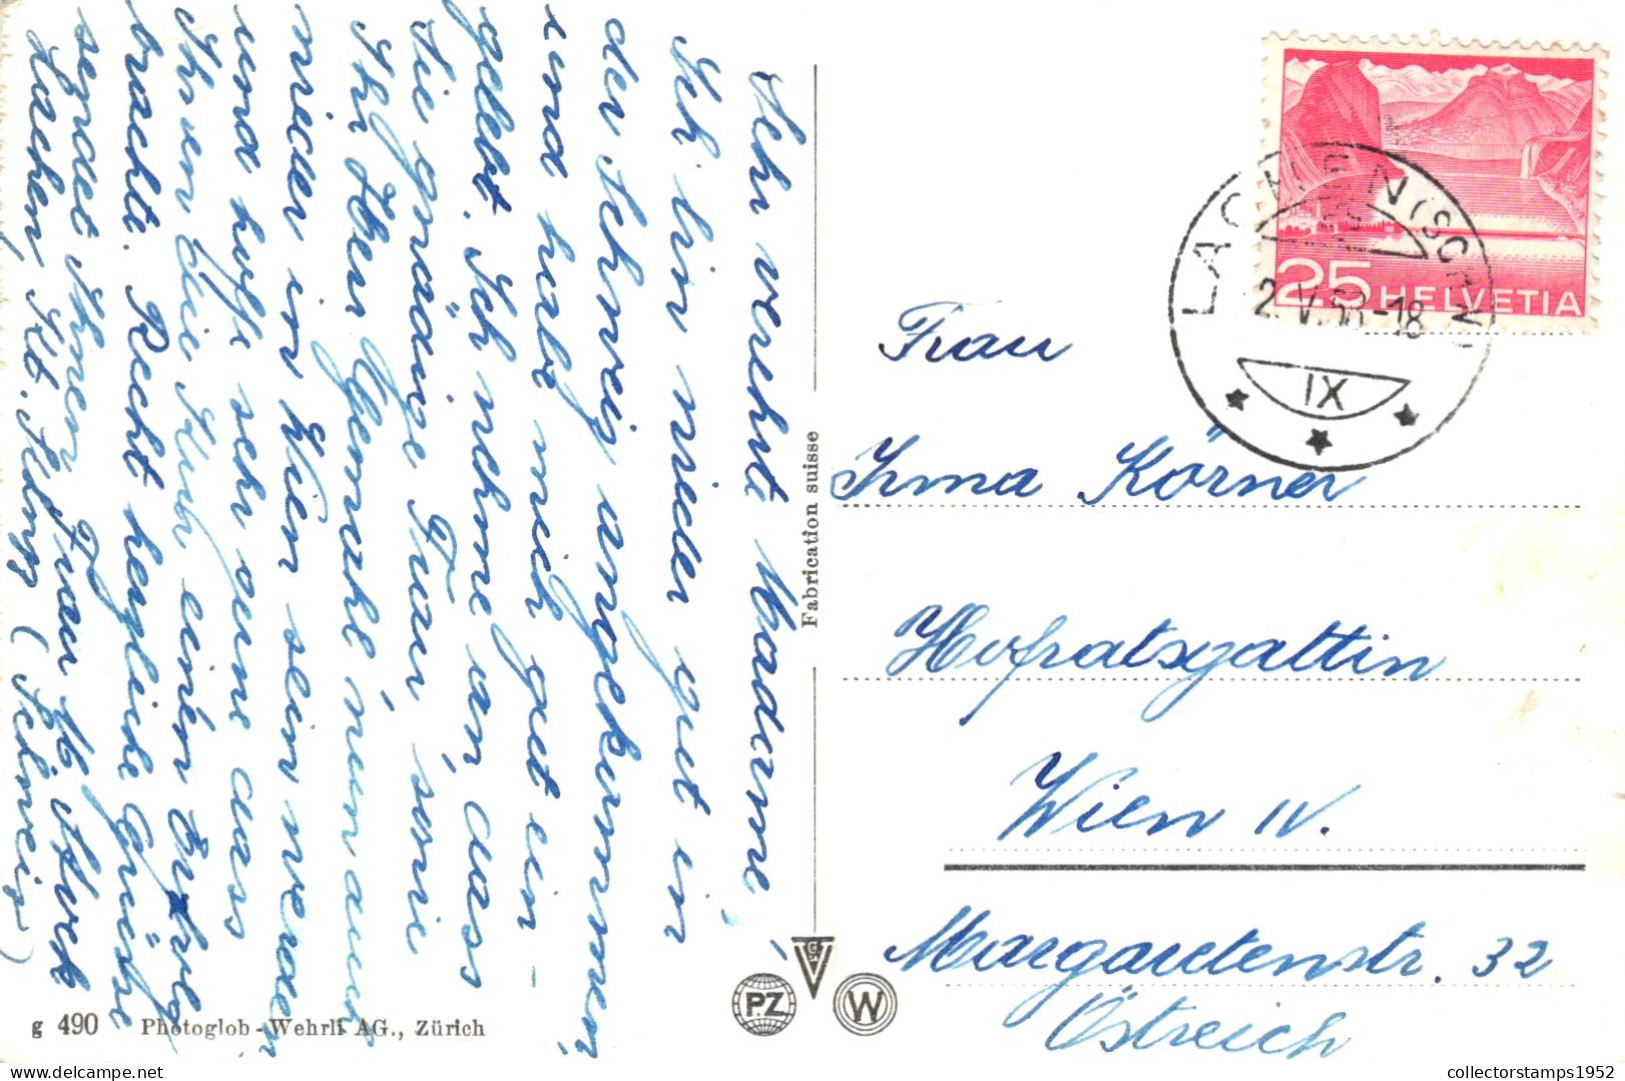 Sehr verehrte Madame,
Ich bin wieder gut in
der Schweiz angekommen,
und habe mich gut ein-
gelebt. Ich nehme an, dass
die gnädige Frau, sowie
Ihr Herr Gemahl nun auch
wieder in Wien sein werden
und hoffe sehr gerne dass
Ihnen die Kur einen Erfolg
brachte. Recht herzliche Grüsse
sendet Ihnen Frau M.
Lachen, Kt. Schwyz (Schweiz)
g 490 Photoglob-Wehrli AG., Zürich
Fabrication suisse
PZ
G
V
W
25 HELVETIA
LACHEN (SCHWYZ)
2.V.58-18
IX
Frau
Irma Körner
Hofratsgattin
Wien IV.
Margaretenstr. 32
Östreich
collectorstamps1952